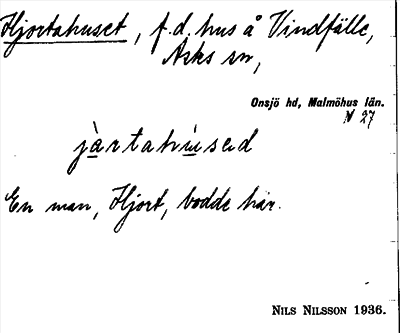 Hjortahuset, f.d. hus å Vindfälle,
Asks sn,
Onsjö hd, Malmöhus län.
N 27
jàrtahúsəd
En man, Hjort, bodde här.
NILS NILSSON 1936.